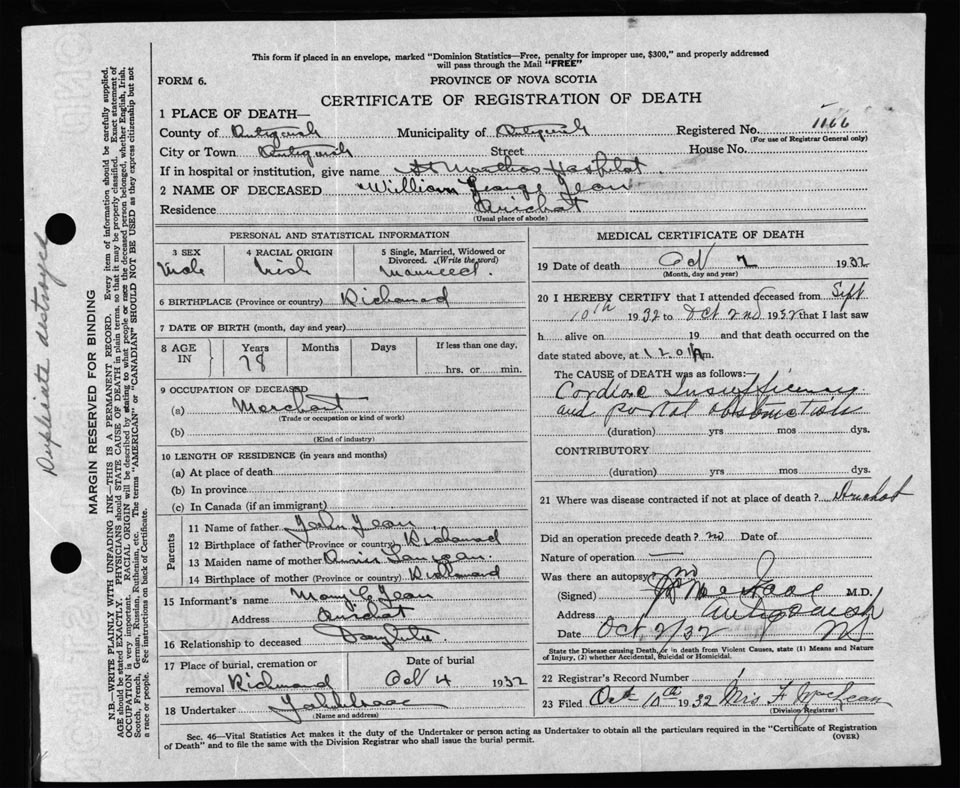 This form if placed in an envelope, marked "Dominion Statistics—Free, penalty for improper use, $300," and properly addressed
will pass through the Mail "FREE"
FORM 6.
PROVINCE OF NOVA SCOTIA
CERTIFICATE OF REGISTRATION OF DEATH
1 PLACE OF DEATH—
County of Antigonish Municipality of Antigonish Registered No. 1166
(For use of Registrar General only)
City or Town Antigonish Street House No.
If in hospital or institution, give name St Marthas Hospital
2 NAME OF DECEASED William George Jean
Residence Arichat
(Usual place of abode)
PERSONAL AND STATISTICAL INFORMATION
3 SEX 4 RACIAL ORIGIN 5 Single, Married, Widowed or Divorced. (Write the word)
Male Irish Married
6 BIRTHPLACE (Province or country) Richmond
7 DATE OF BIRTH (month, day and year)
8 AGE IN Years Months Days If less than one day,
78 hrs. or min.
9 OCCUPATION OF DECEASED
(a) Merchant
(Trade or occupation or kind of work)
(b)
(Kind of industry)
10 LENGTH OF RESIDENCE (in years and months)
(a) At place of death
(b) In province
(c) In Canada (if an immigrant)
Parents
11 Name of father John Jean
12 Birthplace of father (Province or country) Richmond
13 Maiden name of mother
14 Birthplace of mother (Province or country) Richmond
15 Informant's name Mary Jean
Address Arichat
16 Relationship to deceased Daughter
17 Place of burial, cremation or removal Richmond
Date of burial Oct 4 1932
18 Undertaker
(Name and address)
MEDICAL CERTIFICATE OF DEATH
19 Date of death Oct 2 1932
(Month, day and year)
20 I HEREBY CERTIFY that I attended deceased from Sept
10th 1932 to Oct 2nd 1932 that I last saw
h alive on 19 and that death occurred on
date stated above, at m.
The CAUSE OF DEATH was as follows:
Cardiac Insufficiency
and portal obstruction
(duration) yrs mos dys.
CONTRIBUTORY
(duration) yrs mos dys.
21 Where was disease contracted if not at place of death? Arichat
Did an operation precede death? no Date of
Nature of operation —
Was there an autopsy? no
(Signed) M.D.
Address Antigonish
Date Oct 2/32 NS
State the Disease causing Death, or in death from Violent Causes, state (1) Means and Nature
of Injury, (2) whether Accidental, Suicidal or Homicidal.
22 Registrar's Record Number
23 Filed Oct 10th 1932 Mrs F MacLean
(Division Registrar)
Sec. 46—Vital Statistics Act makes it the duty of the Undertaker or person acting as Undertaker to obtain all the particulars required in the "Certificate of Registration
of Death" and to file the same with the Division Registrar who shall issue the burial permit.
(OVER)
Duplicate destroyed
MARGIN RESERVED FOR BINDING
N.B.—WRITE PLAINLY WITH UNFADING INK—THIS IS A PERMANENT RECORD. Every item of information should be carefully supplied.
AGE should be stated EXACTLY. PHYSICIANS should STATE CAUSE OF DEATH in plain terms, so that it may be properly classified. Exact statement of
OCCUPATION is very important. RACIAL ORIGIN will be described by stating to what people or race the deceased person belonged, whether English, Irish,
Scotch, French, German, Russian, Ruthenian, etc. The terms "AMERICAN" or "CANADIAN" SHOULD NOT BE USED as they express citizenship but not
a race or people. Fee instructions on back of Certificate.